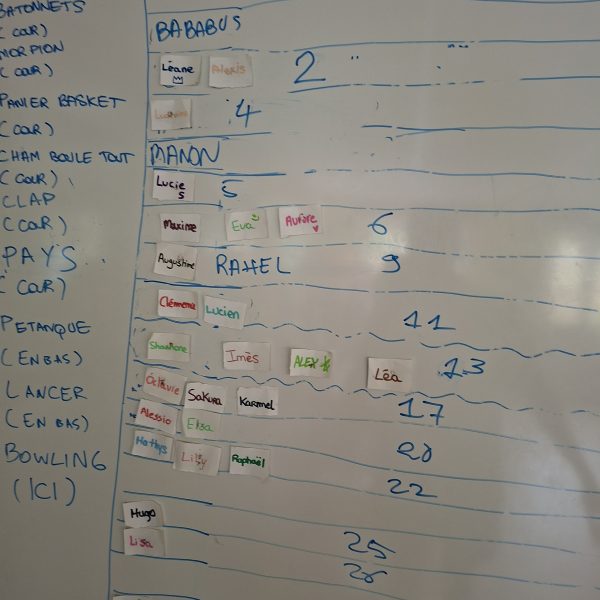 BATONNETS
(COUR)
BABABUS
MORPION
(COUR)
Léane Alexis 2
PANIER BASKET
(COUR)
4
CHAM BOULE TOUT
MANON
(COUR)
Lucie S 5
CLAP
(COUR)
Maxime Eva Aurore 6
PAYS
(COUR)
Augustine RAHEL 9
Clémence Lucien 11
PETANQUE
(EN BAS)
Imès ALEX Léa 13
LANCER
(EN BAS)
Octavie Sakura Karmel 17
Alessio Elsa 20
BOWLING
(ICI)
Mathys Lilly Raphaël 22
Hugo 25
Lisa 26